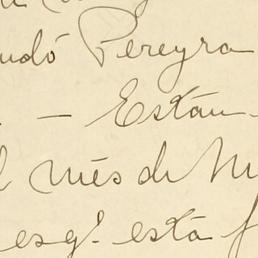 udó Pereyra
— Están
l més de M
esqⁱ. está f